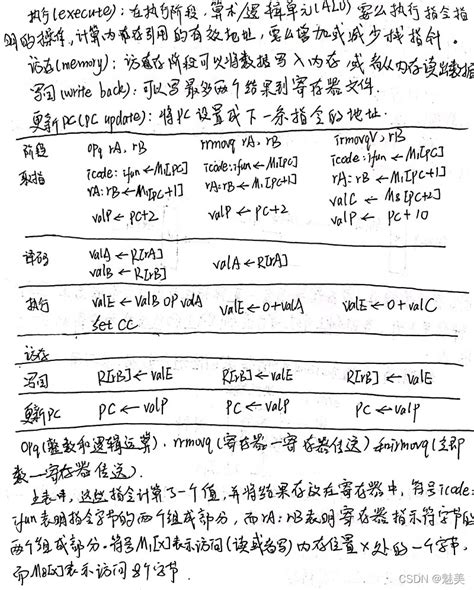 执行(execute)：在执行阶段，算术/逻辑单元(ALU)要么执行指令指
明的操作，计算内存引用的有效地址，要么增加或减少栈指针。
访存(memory)：访存阶段可以将数据写入内存，或者从内存读出数据
写回(write back)：可以写最多两个结果到寄存器文件.
更新PC(PC update)：将PC设置成下一条指令的地址.
阶段 OPq rA, rB rrmovq rA, rB irmovq V, rB
取指 icode:ifun ← M1[PC] icode:ifun ← M1[PC] icode:ifun ← M1[PC]
rA:rB ← M1[PC+1] rA:rB ← M1[PC+1] rA:rB ← M1[PC+1]
valC ← M8[PC+2]
valP ← PC+2 valP ← PC+2 valP ← PC+10
译码 valA ← R[rA] valA ← R[rA]
valB ← R[rB]
执行 valE ← valB OP valA valE ← 0+valA valE ← 0+valC
Set CC
访存
写回 R[rB] ← valE R[rB] ← valE R[rB] ← valE
更新PC PC ← valP PC ← valP PC ← valP
OPq(整数和逻辑运算)、rrmovq(寄存器—寄存器传送)和irmovq(立即
数—寄存器传送).
上表中，这些指令计算了一个值，并将结果存放在寄存器中，符号icode:
ifun表明指令字节的两个组成部分，而rA:rB表明寄存器指示符字节的
两个组成部分.符号M1[x]表示访问(读或者写)内存位置x处的一个字节，
而M8[x]表示访问8个字节.
CSDN @魅美